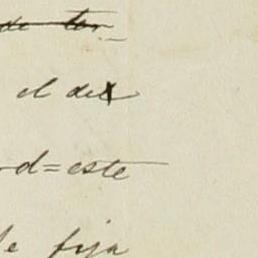 de ter-
el del
d=este
le fija